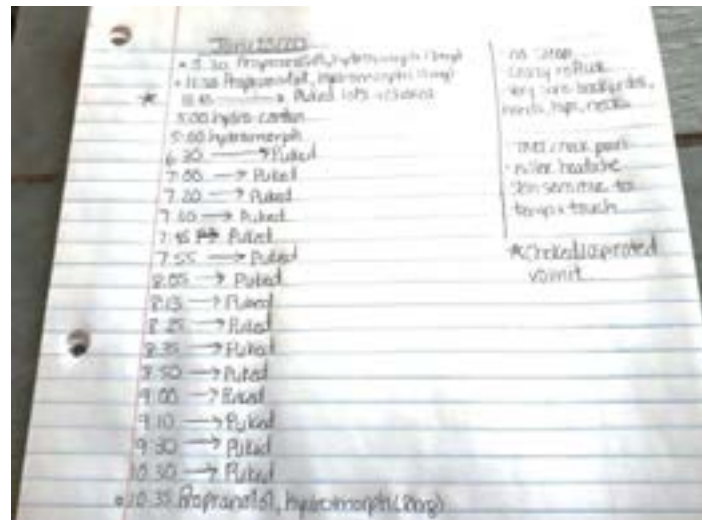 Propranolol, hydromorph (2mg)
Propranolol, hydromorph
Puked lots + choked
5:00 hydro-
5:00 hydromorph
6:30 → Puked
7:00 → Puked
7:20 → Puked
→ Puked
7:45 Puked
7:55 → Puked
8:05 → Puked
8:15 → Puked
8:25 → Puked
8:35 → Puked
8:50 → Puked
9:00 → Puked
9:10 → Puked
9:30 → Puked
10:30 → Puked
10:35 Propranolol, hydromorph (2mg)
no sleep
crazy reflux
very sore
hands, hips, neck
neck pain
killer headache
skin sensitive to
temp + touch
*Choked/aspirated
vomit